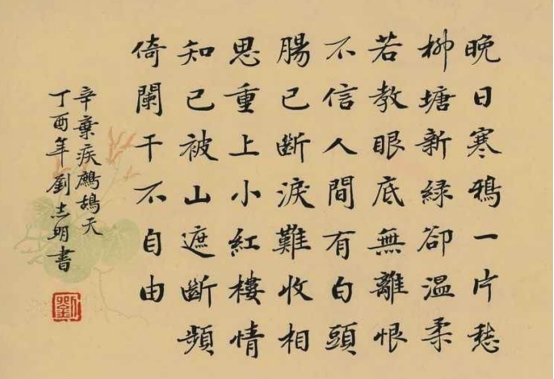 晚日寒鴉一片愁
柳塘新綠卻溫柔
若教眼底無離恨
不信人間有白頭
腸已斷淚難收相
思重上小紅樓情
知已被山遮斷頻
倚闌干不自由
辛棄疾鷓鴣天
丁酉年劉志明書
劉